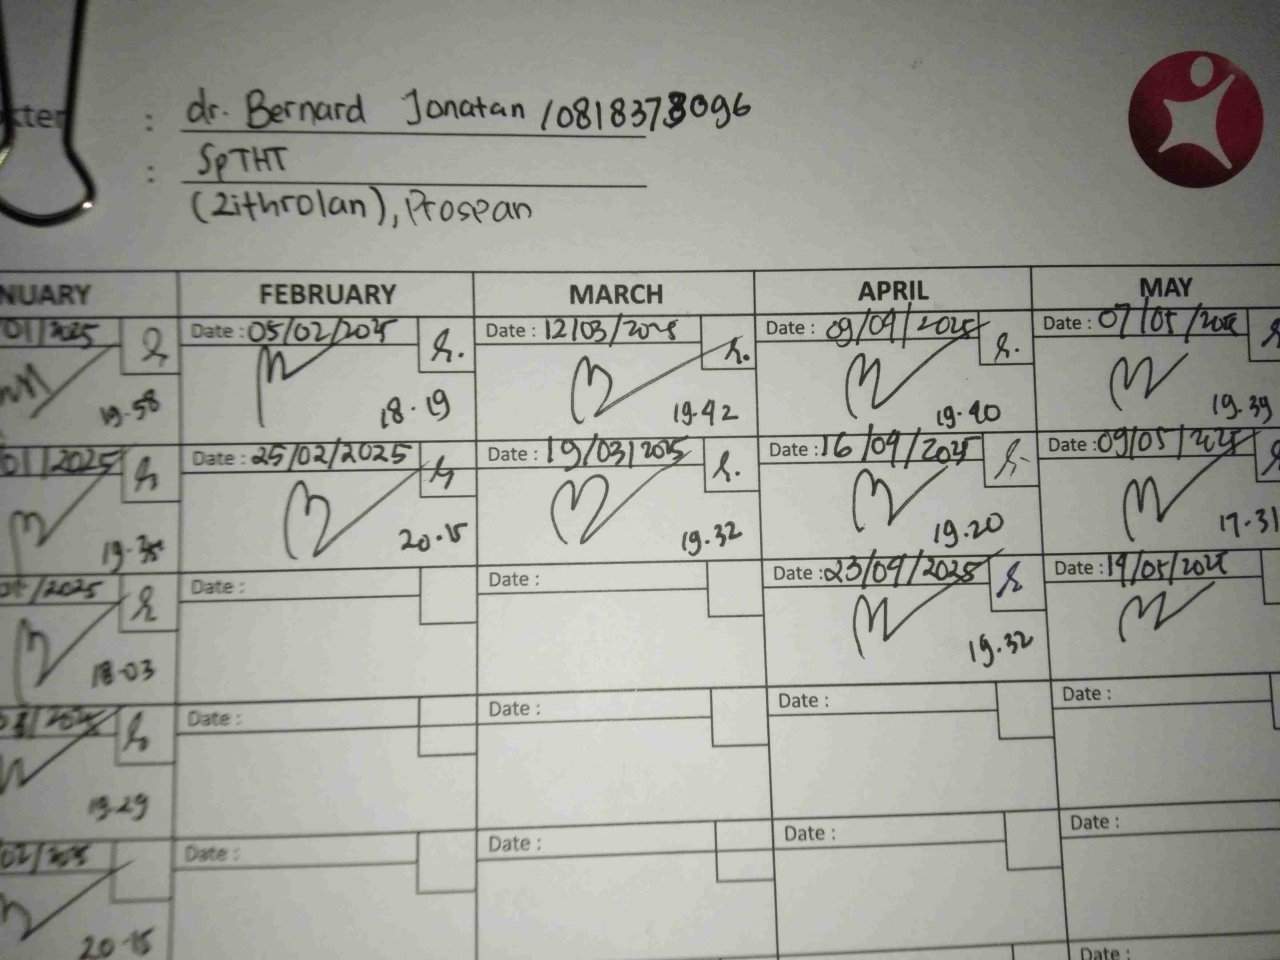 : dr. Bernard Jonatan /0818378096
: SpTHT
(Zithrolan), Prospan
NUARY FEBRUARY MARCH APRIL MAY
01/2025 Date : 05/02/2025 Date : 12/03/2025 Date : 09/04/2025 Date : 07/05/2025
19-58 18-19 19-42 19-40 19.39
01/2025 Date : 25/02/2025 Date : 19/03/2025 Date : 16/04/2025 Date : 09/05/2025
19-35 20-15 19.32 19.20 17-31
/2025 Date : Date : Date : 23/04/2025 Date : 14/05/2025
18-03 19.32
Date : Date : Date : Date :
19-29
02/2025 Date : Date : Date : Date :
20-15
Date :